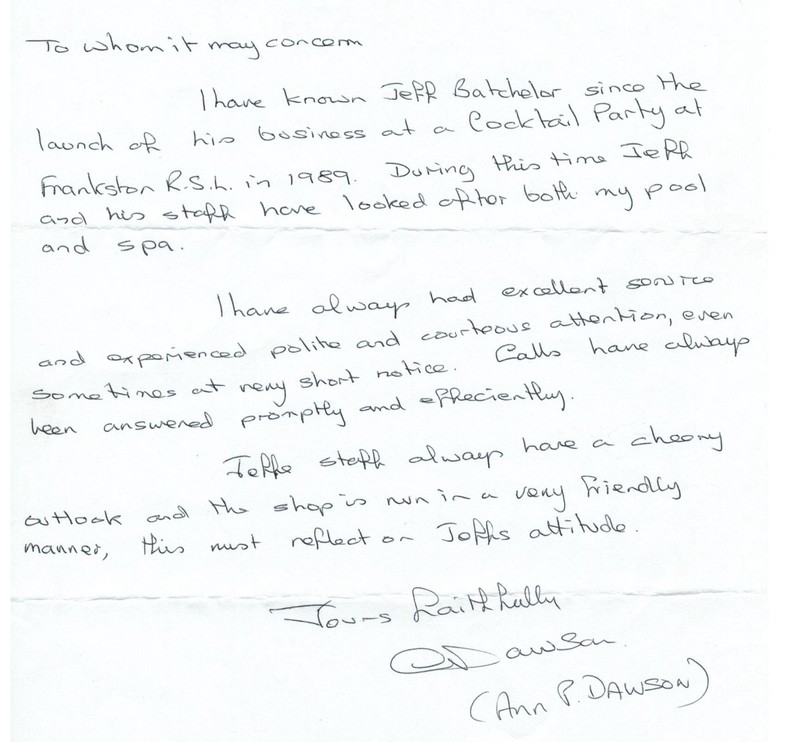 To whom it may concern
I have known Jeff Batchelor since the
launch of his business at a Cocktail Party at
Frankston R.S.L. in 1989. During this time Jeff
and his staff have looked after both my pool
and spa.
I have always had excellent service
and experienced polite and courteous attention, even
sometimes at very short notice. Calls have always
been answered promptly and effeciently.
Jeffs staff always have a cheery
outlook and the shop is run in a very friendly
manner, this must reflect on Jeffs attitude.
Yours faithfully
Dawson.
(Ann P. DAWSON)